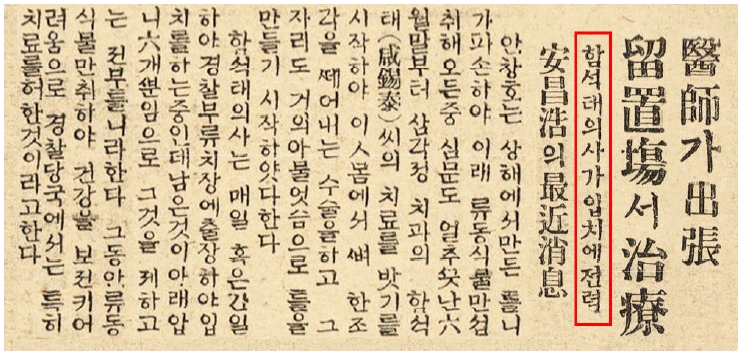 醫師가出張
留置塲서治療
함석태의사가입치에전력
安昌浩의最近消息
안창호는 상해에서만든 틀니
가파손하야 이래 류동식물만섭
취해오든중 심문도 얼추ᄭᅳᆺ난六
월말부터 삼각정 치과의 함석
태(咸錫泰)씨의 치료를 밧기를
시작하야 이人몸에서 ᄲᅧ 한조
각을 ᄯᅦ어내는 수술을하고 그
자리도 거의아물엇슴으로 틀을
만들기 시작하얏다한다
함석태의사는 매일 혹은간일
하야경찰부류치장에출장하야입
치를하는중인데남은것이아래압
니六개ᄲᅮᆫ임으로 그것을 제하고
는 전부틀니라한다 그동안류동
식물만취하야 건강을 보전키어
려움으로 경찰당국에서는 특히
치료를허한것이라고한다